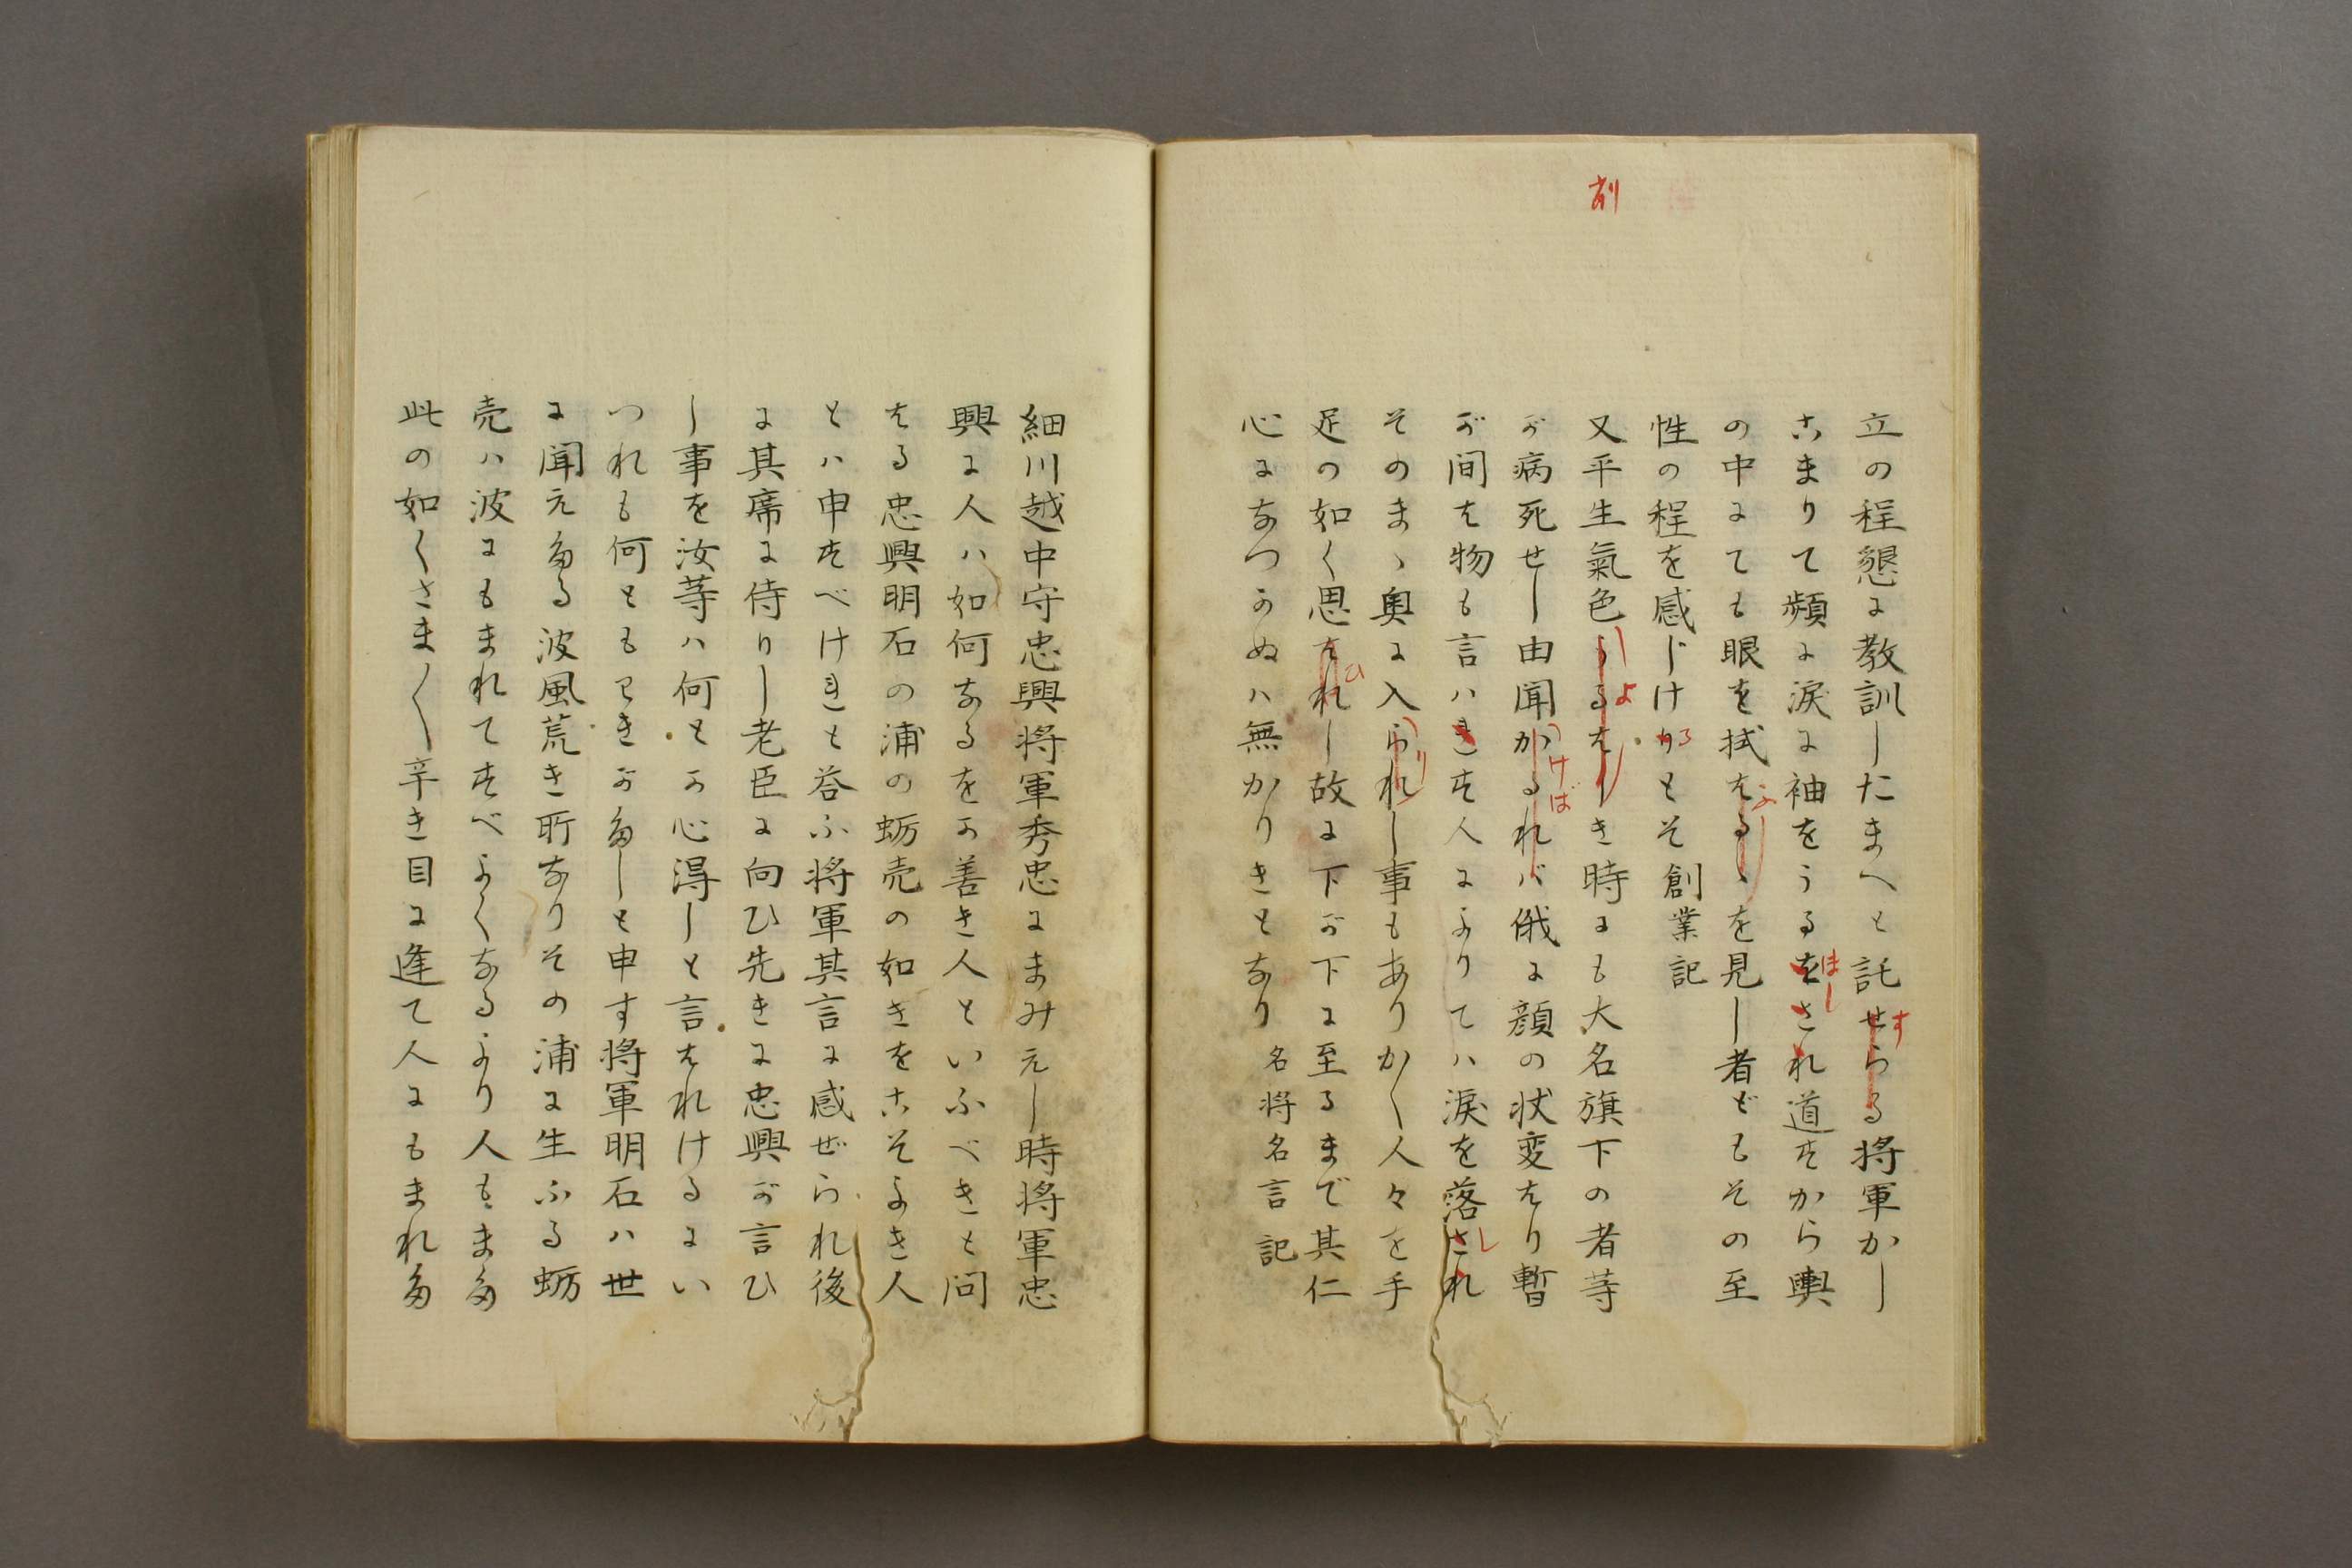 削
立の程懇に教訓したまへと託せらる将軍かし
す
こまりて頻に涙に袖をうるをされ道すから輿
ほし
の中にても眼を拭はるゝを見し者どもその至
ふ
性の程を感じけりとそ 創業記
る
又平生氣色うるはしき時にも大名旗下の者等
よ
が病死せし由聞かるれバ俄に顔の状変はり暫
けば
が間は物も言ハれす人によりてハ涙を落され
し
そのまゝ奥に入られし事もありかく人々を手
り
足の如く思はれし故に下が下に至るまで其仁
ひ
心になつかぬハ無かりきとなり 名将名言記
細川越中守忠興将軍秀忠にまみえし時将軍忠
興に人ハ如何なるをか善き人といふべきと問
はる忠興明石の浦の蛎売の如きをこそよき人
とハ申すべけれと荅ふ将軍其言に感ぜられ後
に其席に侍りし老臣に向ひ先きに忠興が言ひ
し事を汝等ハ何とか心得しと言はれけるにい
つれも何ともわきがたしと申す将軍明石ハ世
に聞えたる波風荒き所なりその浦に生ふる蛎
売ハ波にもまれてすべよくなるより人もまた
此の如くさま〱辛き目に逢て人にもまれた